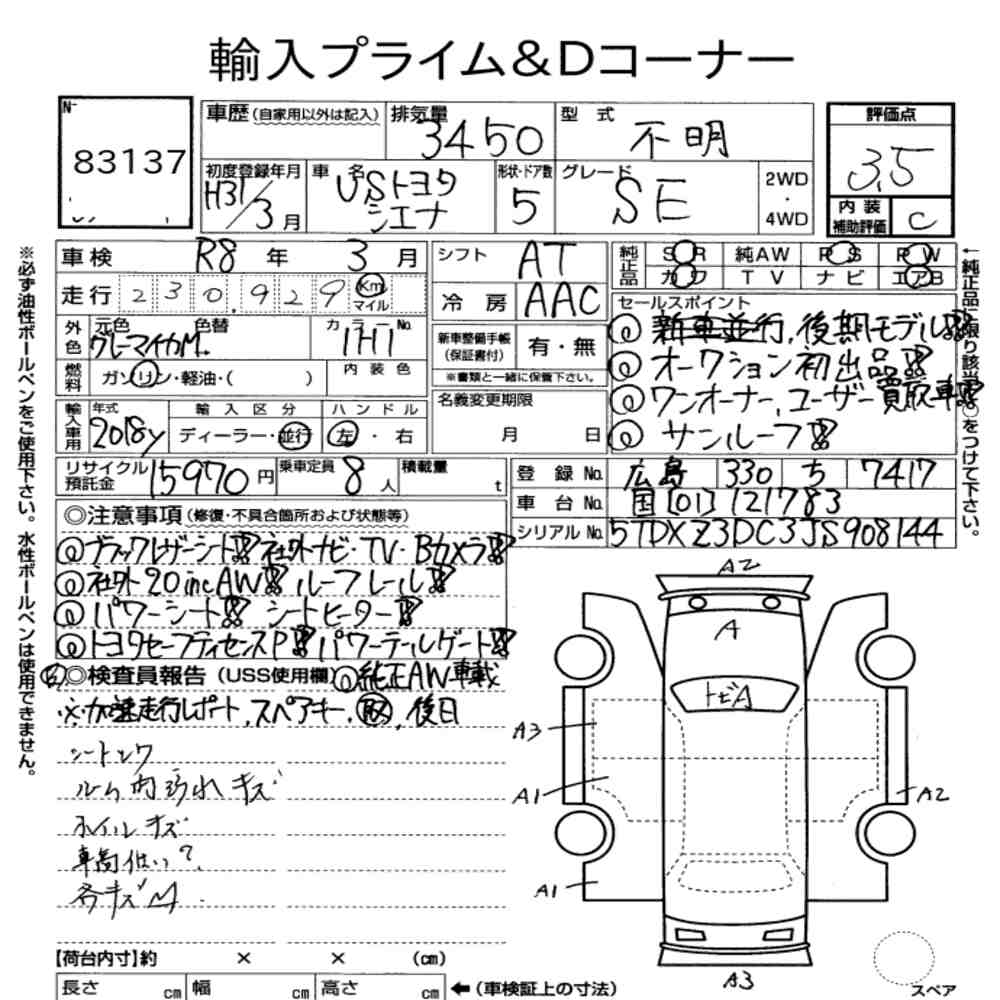 輸入プライム&Dコーナー
№
83137
車歴 (自家用以外は記入)
排気量
3450
型式
不明
評価点
3.5
内装補助評価
C
初度登録年月
H31/3月
車名
USトヨタ
シエナ
形状・ドア数
5
グレード
SE
2WD
・
4WD
車検 R8 年 3 月
走行 230,929 Km
マイル
シフト
AT
冷房
AAC
純正品
SR 純AW PS PW
カワ TV ナビ エアB
外色
元色 色替
グレーマイカM.
カラーNo.
1H1
内装色
燃料
ガソリン・軽油・( )
新車整備手帳
(保証書付)
有・無
※書類と一緒に保管下さい。
セールスポイント
◎新車並行,後期モデル!!
◎オークション初出品!!
◎ワンオーナー,ユーザー買取車!!
◎サンルーフ!!
輸入車用
年式
2018y
輸入区分
ディーラー・並行
ハンドル
左・右
名義変更期限
月 日
リサイクル預託金
15970円
乗車定員
8人
積載量
t
登録No. 広島 330 ち 7417
車台No. 国[01]121783
シリアルNo. 5TDXZ3DC3JS908144
◎注意事項 (修復・不具合箇所および状態等)
◎ブラックレザーシート!!社外ナビ・TV・Bカメラ!!
◎社外20incAW!!ルーフレール!!
◎パワーシート!!シートヒーター!!
◎トヨタセーフティセンスP!!パワーテールゲート!!
◎検査員報告 (USS使用欄) ◎純正AW車載
※加速走行レポート,スペアキー,取,後日
ルーム内汚れキズ
ホイルキズ
車高低い?
各キズM
A2
A
トビA
A3
A1
A1
A2
A3
【荷台内寸】約 × × (cm)
長さ cm 幅 cm 高さ cm
←(車検証上の寸法)
スペア
※必ず油性ボールペンをご使用下さい。水性ボールペンは使用できません。